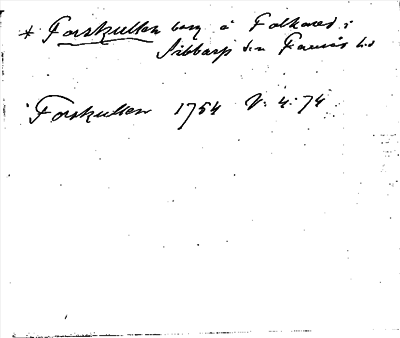 * Forskullen berg å Folkared i
Sibbarp sn Faurås hd
Forskullen 1754 V: 4: 74